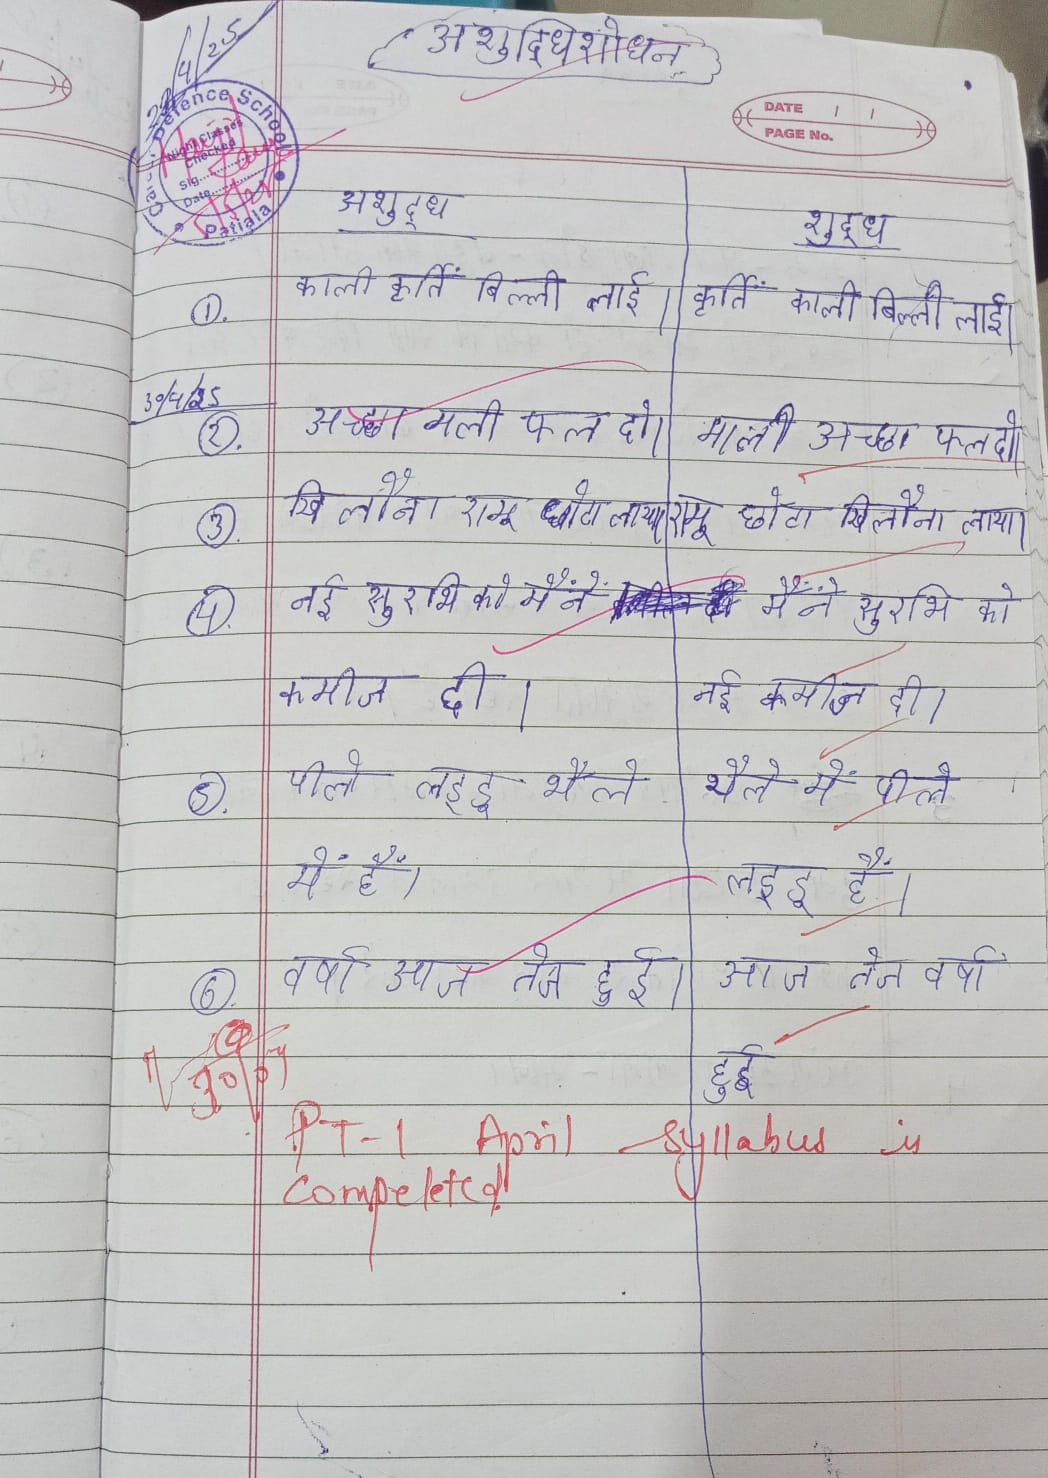 29/4/25
अशुद्धिशोधन
DATE
PAGE No.
Defence School
Night Classes
Checked
Sig.
Date
Patiala
अशुद्ध शुद्ध
①. काली कृर्ति बिल्ली लाई। कृर्ति काली बिल्ली लाई।
30/4/25
②. अच्छा मली फल दो। माली अच्छा फल दो।
③. खिलौना रामू छोटा लाया। रामू छोटा खिलौना लाया।
④. नई सुरभि को मैंनें मैंने सुरभि को
कमीज दी। नई कमीज दी।
⑤. पीले लड्डू थैले थैले में पीले
में हैं। लड्डू हैं।
⑥. वर्षा आज तेज हुई। आज तेज वर्षा
हुई
PT-1 April syllabus is
compeleted